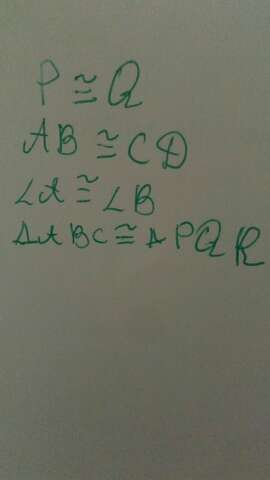 P ≅ Q
AB ≅ CD
∠A ≅ ∠B
ΔABC ≅ ΔPQR